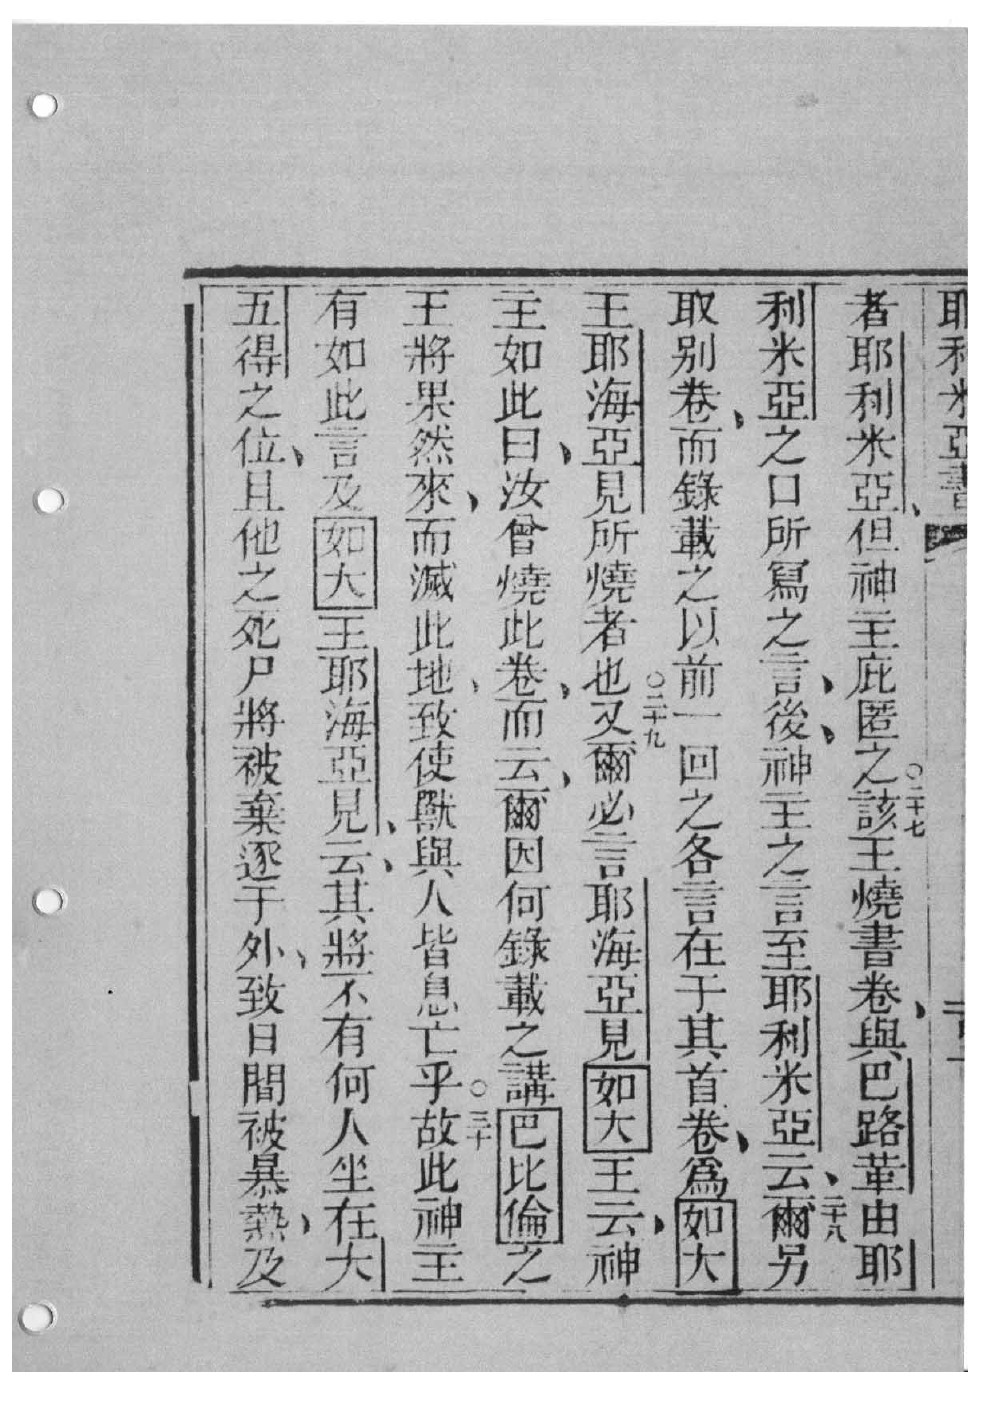 耶利米亞書
者耶利米亞、但神主庇匿之○二十七該王燒書卷、與巴路葷由耶
利米亞之口所寫之言、後、神主之言至耶利米亞云、二十八爾另
取別卷、而錄載之以前一回之各言在于其首卷、爲如大
王耶海亞見所燒者也○二十九又爾必言耶海亞見如大王云、神
主如此曰、汝曾燒此卷、而云、爾因何錄載之講巴比倫之
王將果然來、而滅此地、致使獸與人皆息亡乎○三十故此神主
有如此言及如大王耶海亞見、云、其將不有何人坐在大
五得之位、且他之死尸將被棄逐于外、致日間被暴熱、及